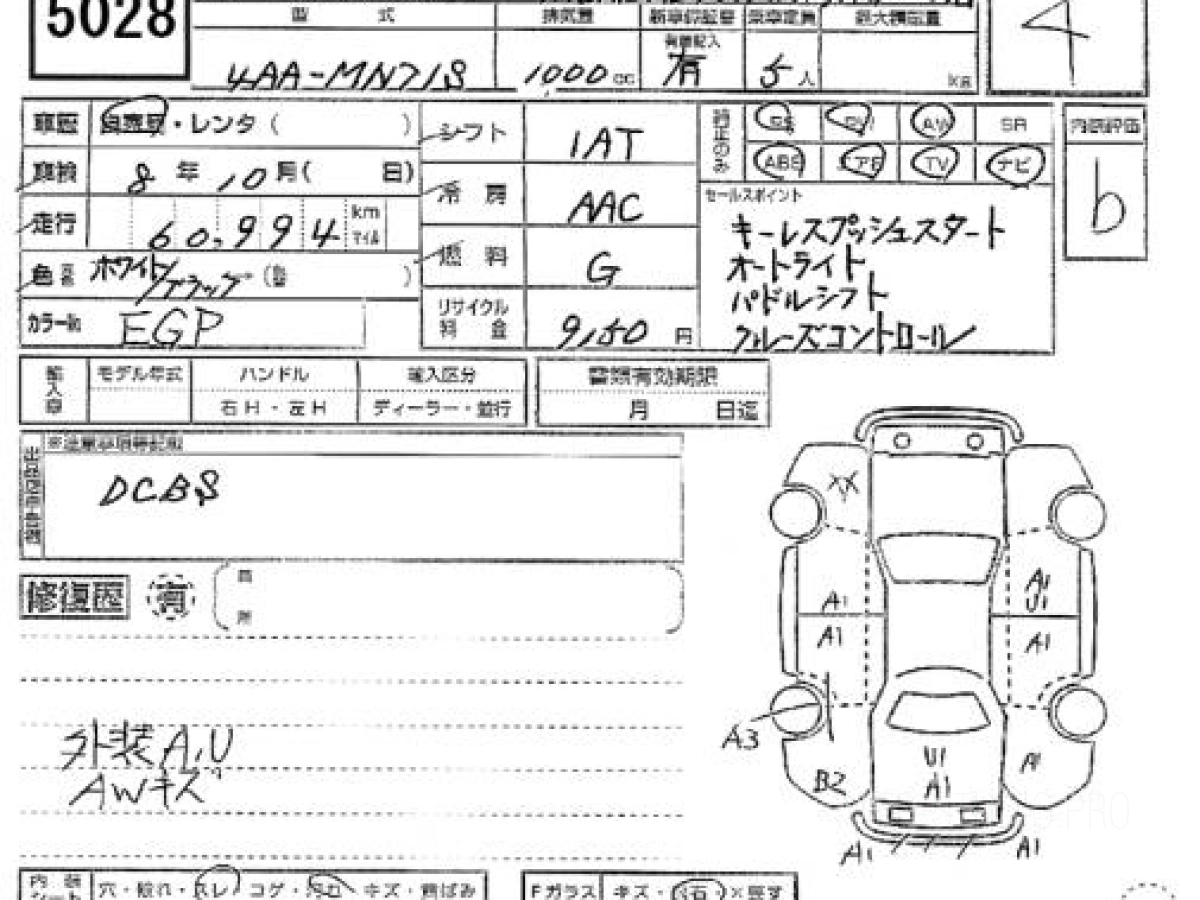 5028
型 式 排気量 新車保証書 乗車定員 最大積載量
有無記入
4AA-MN71S 1000 cc 有 5人 kg
4
車歴 自家用・レンタ ( )
シフト 1AT
PS PW AW SR
ABS エアB TV ナビ
内装評価
b
車検 8年 10月( 日)
冷房 AAC
セールスポイント
走行 60,994 km マイル
キーレスプッシュスタート
オートライト
パドルシフト
クルーズコントロール
色 ホワイト/ブラック ( )
燃料 G
カラーNo EGP
リサイクル料金 9,150円
輸入車 モデル年式 ハンドル 輸入区分 書類有効期限
右H・左H ディーラー・並行 月 日迄
※注意事項等記載
DCBS
修復歴 有
外装A,U
AWキズ
XX
A1
A1
A1
U1
A1
A3
B2
U1
A1
A1
A1
A1
内装 シート 穴・破れ・スレ・コゲ・汚れ・キズ・黄ばみ
Fガラス キズ・飛石・×要す